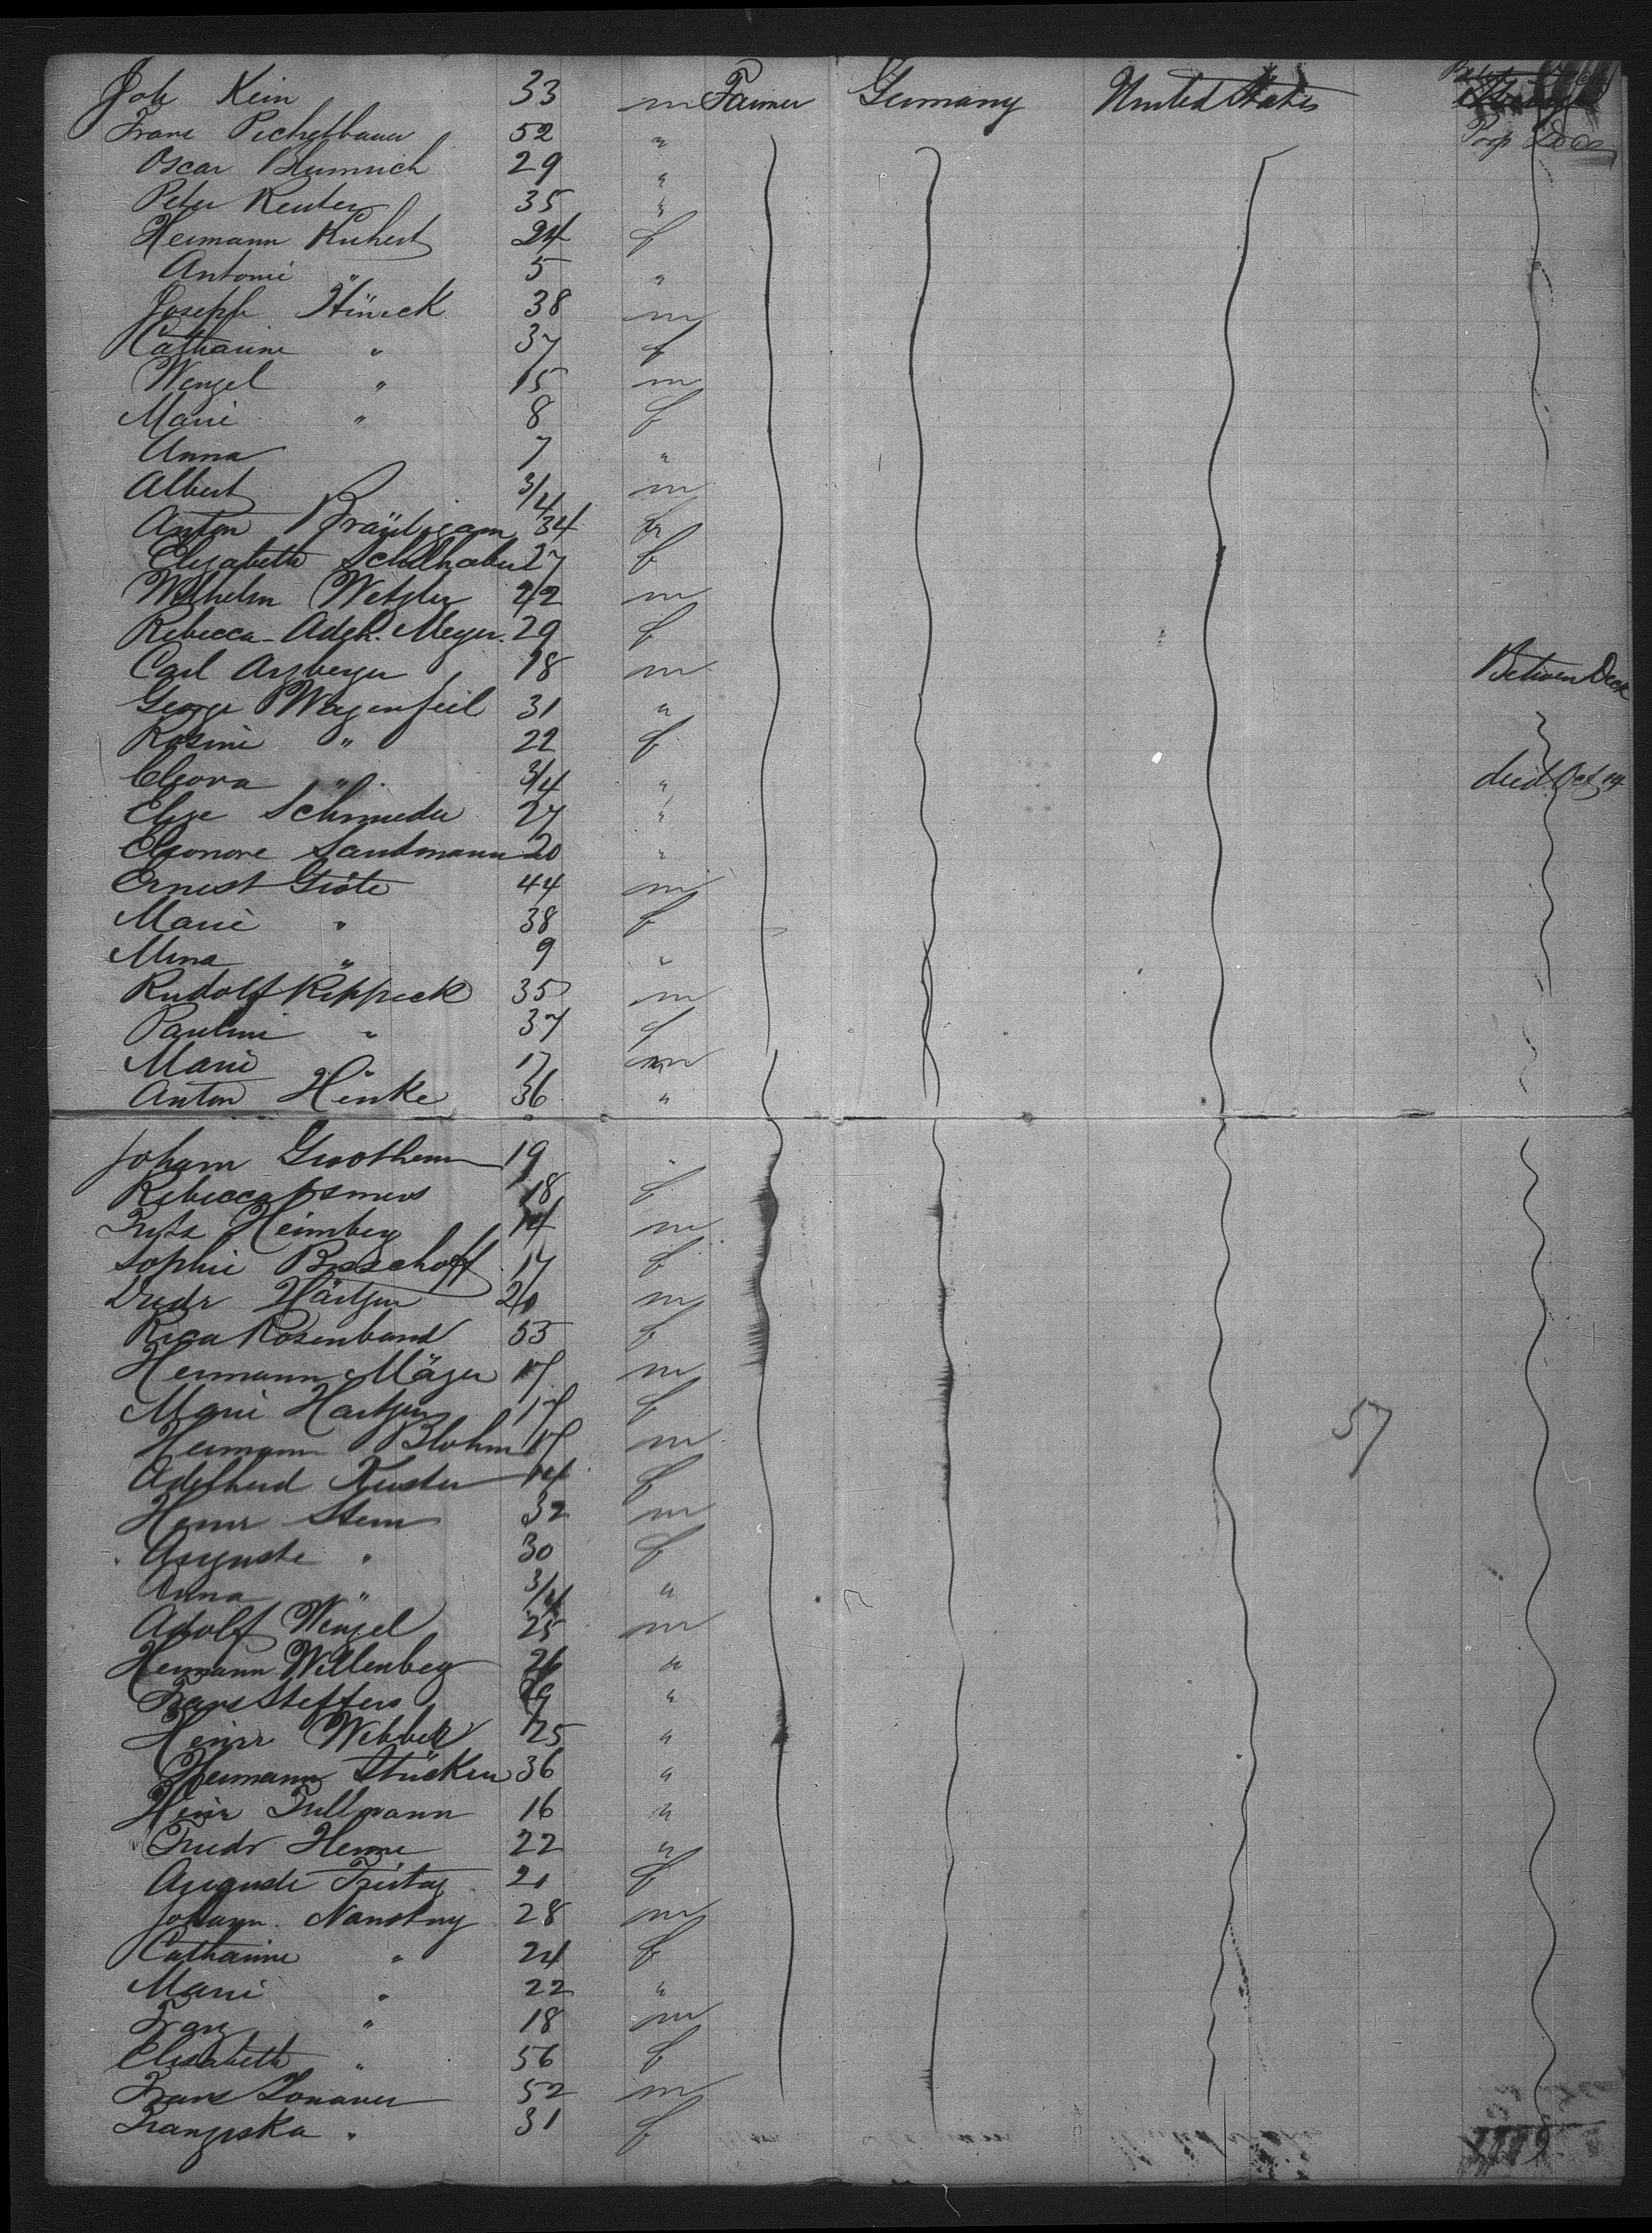 Joh Kein 33 m Farmer Germany United States
Franz Pichelbauer 52 " Poop Deck
Oscar Blumrich 29 "
Peter Reuter 35 "
Hermann Kuhert 24 f
Antonie " 5 "
Joseph Hüneck 38 m
Catharine " 37 f
Wenzel " 15 m
Marie " 8 f
Anna 7 "
Albert 3/4 m
Anton Bräutigam 34 m
Elizabeth Schellhaber 27 f
Wilhelm Wetzler 22 m
Rebecca Adelh. Meyer. 29 f
Carl Arzberger 18 m Between Deck
George Wagenfeil 31 "
Rosine " 22 f
Cleova " 3/4 " died Oct 14
Elise Schmieder 27 "
Eleonore Sandmann 20 "
Ernest Gröte 44 m
Marie " 38 f
Mina " 9 "
Rudolf Kippeck 35 m
Pauline " 37 f
Marie " 17 m
Anton Hinke 36 "
Johann Grootheen 19 "
Rebecca 18 f
Fritz Heimberg 14 m
Sophie Bosschoff 17 f
Diedr Härtjen 20 m
Rica Rosenband 53 f
Hermann Mäjer 17 m
Marie Hartjen 17 f
Hermann Blohm 17 m 57
Adelheid Kuster 14 f
Heinr Stern 32 m
Auguste " 30 f
Anna " 3/4 "
Adolf Wenzel 25 m
Hermann Willenberg 26 "
Franz Steffens 29 "
Heinr Webbek 25 "
Hermann Stücken 36 "
Heinr Tullmann 16 "
Friedr Henne 22 "
Auguste Freitag 21 f
Johann. Nanstny 28 m
Catharine " 24 f
Marie " 22 "
Franz " 18 m
Elisabeth " 56 f
Franz Zonauer 52 m
Franziska " 31 f